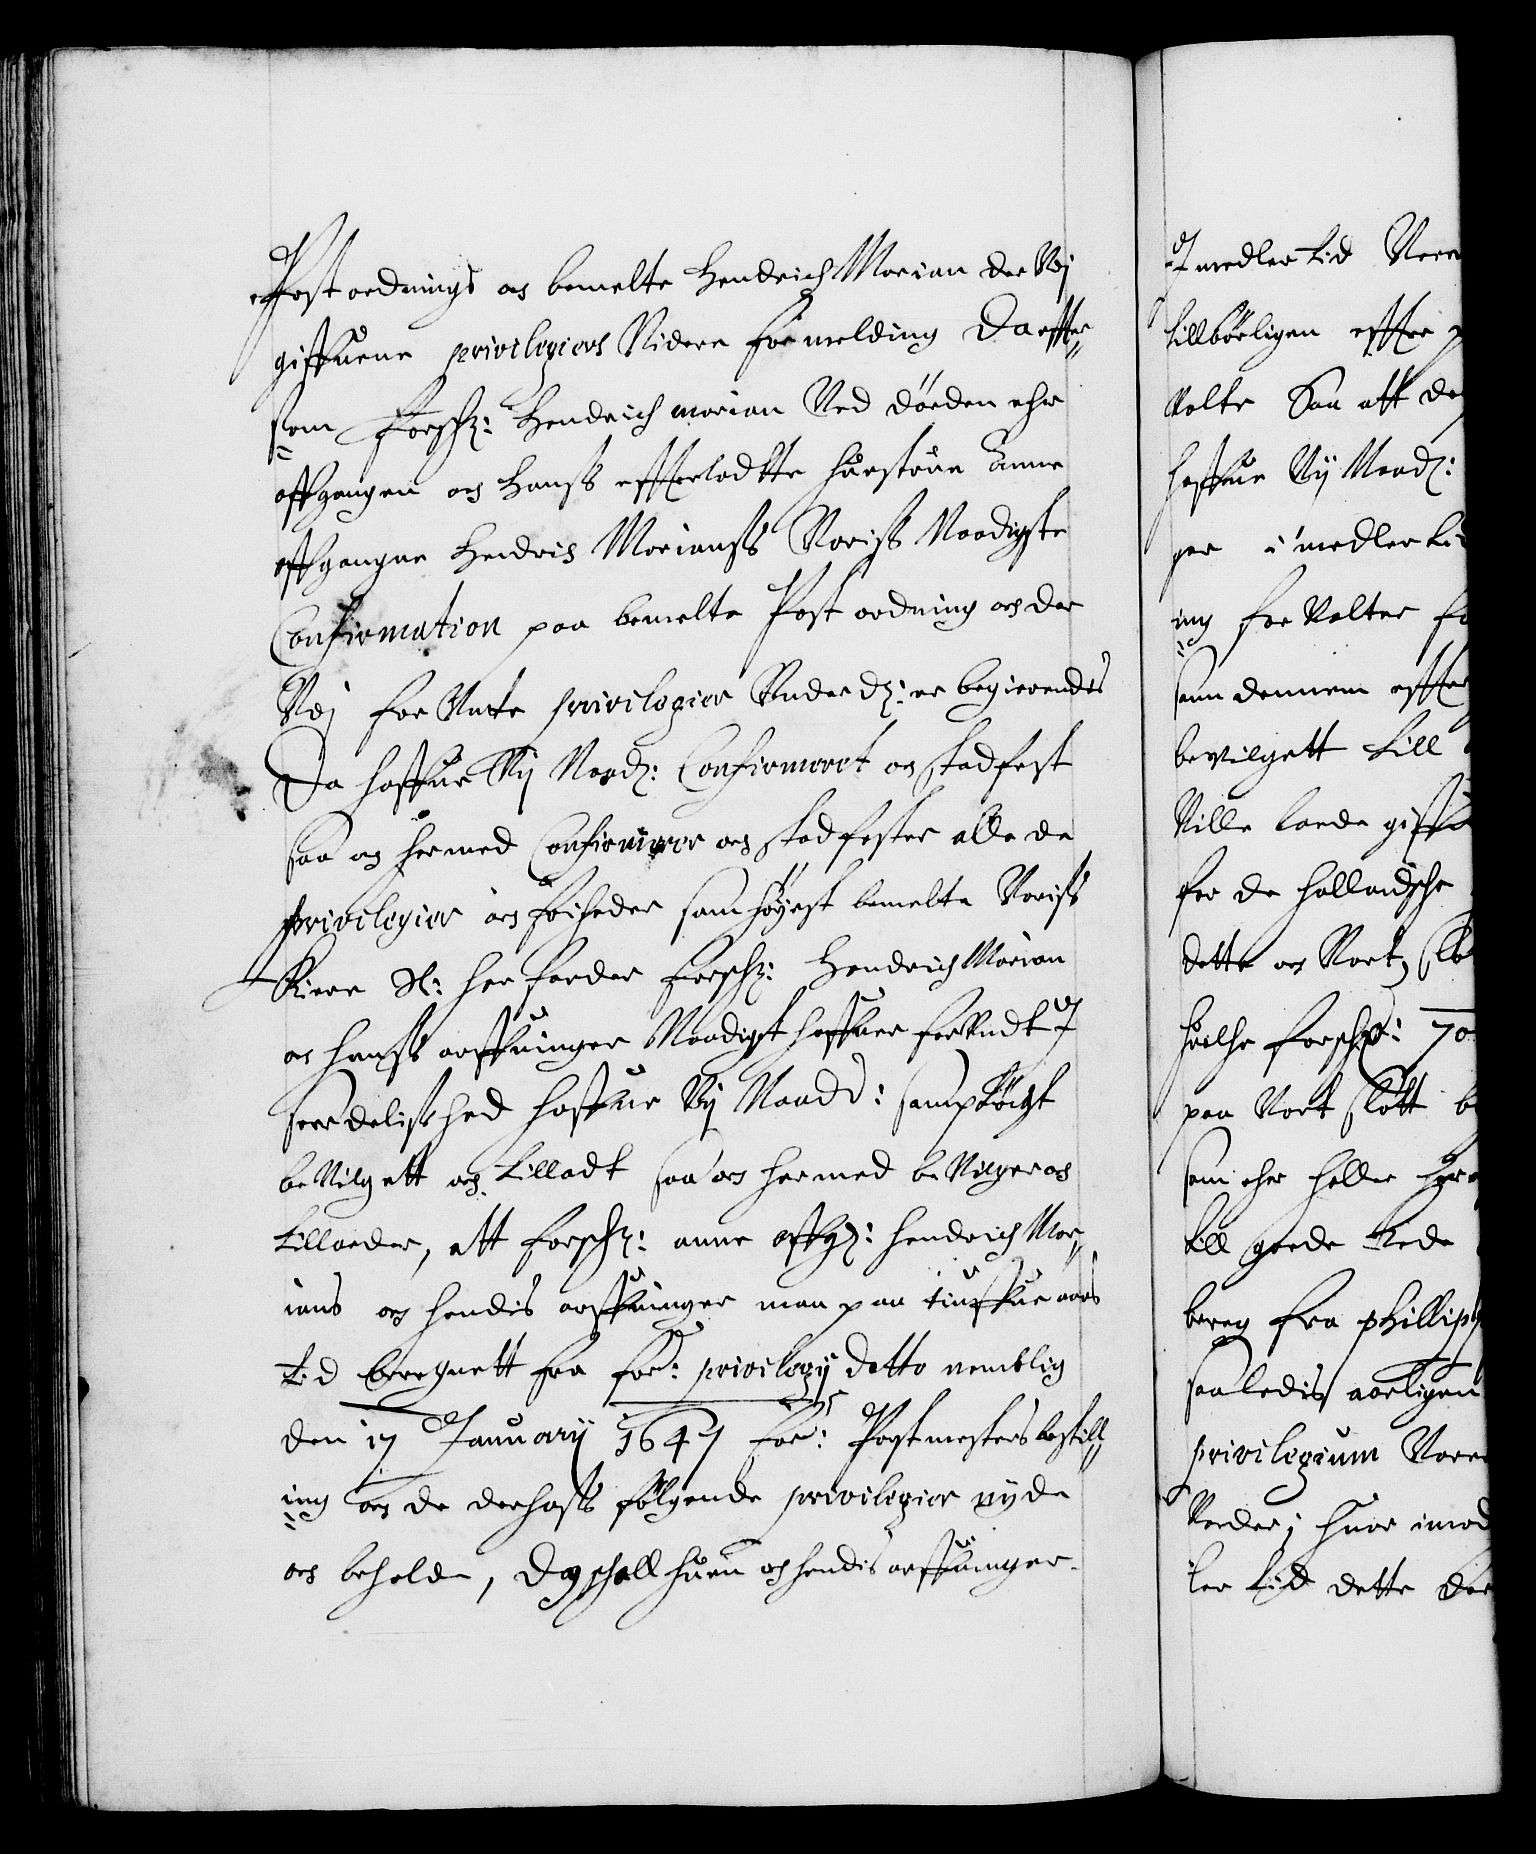 Post ordnings og bemelte Hendrich Morian der Vdj
giffuene privilegiers Videre formelding Daeffter
som Forschr: Hendrich morian Ved döeden ehr
affgangen och Hanss effterladtte hüestrue Anne
affgangne Hendric Morianss Voriss Naadigste
Confirmation paa bemelte Post ordning och der
Vdj for Vnte privilegier Vnderd: er begierendes
Da haffue Vij Naad: Confirmeret og stadfest
saa og hermed Confirmerer och stadfester alle de
privilegier och friheder som höyest bemelte Voriss
Kiere Sl: her fader forschr: Hendrich Morian
og hanss arffuinger Naadigst haffuer forVndt I
serdelished haffue Vij Naad: sampt
beVilgett och tilladt saa og hermed beVilger och
tillader, att forschr: anne affg: Hendrich Mor,,
ians og hendis arffuinger maa paa tiuffue aars
tid beregnett fra for: privilegij datto nemblig
den 17 January 1647 for: Postmesters bestill,,
ing och de derhoss fölgende privilegier nyde
och beholde, Dog schall huen och hendis arffuinger
I medler tid Vere
tillbörligen effter
Volte Saa att de
haffue Vij Naad:
ger i medlerti
ing for Volter f
som dennem effter
bevilgett till
Ville lade giffu
for de hollandsche
dette och Vort,
huilche forschr: 70
paa Vort slott b
som eher heller
till goede Rede
bereg fra phillip
saaledis aarligen
privilegium Vore
Verder; huor imod
ler tid dette der